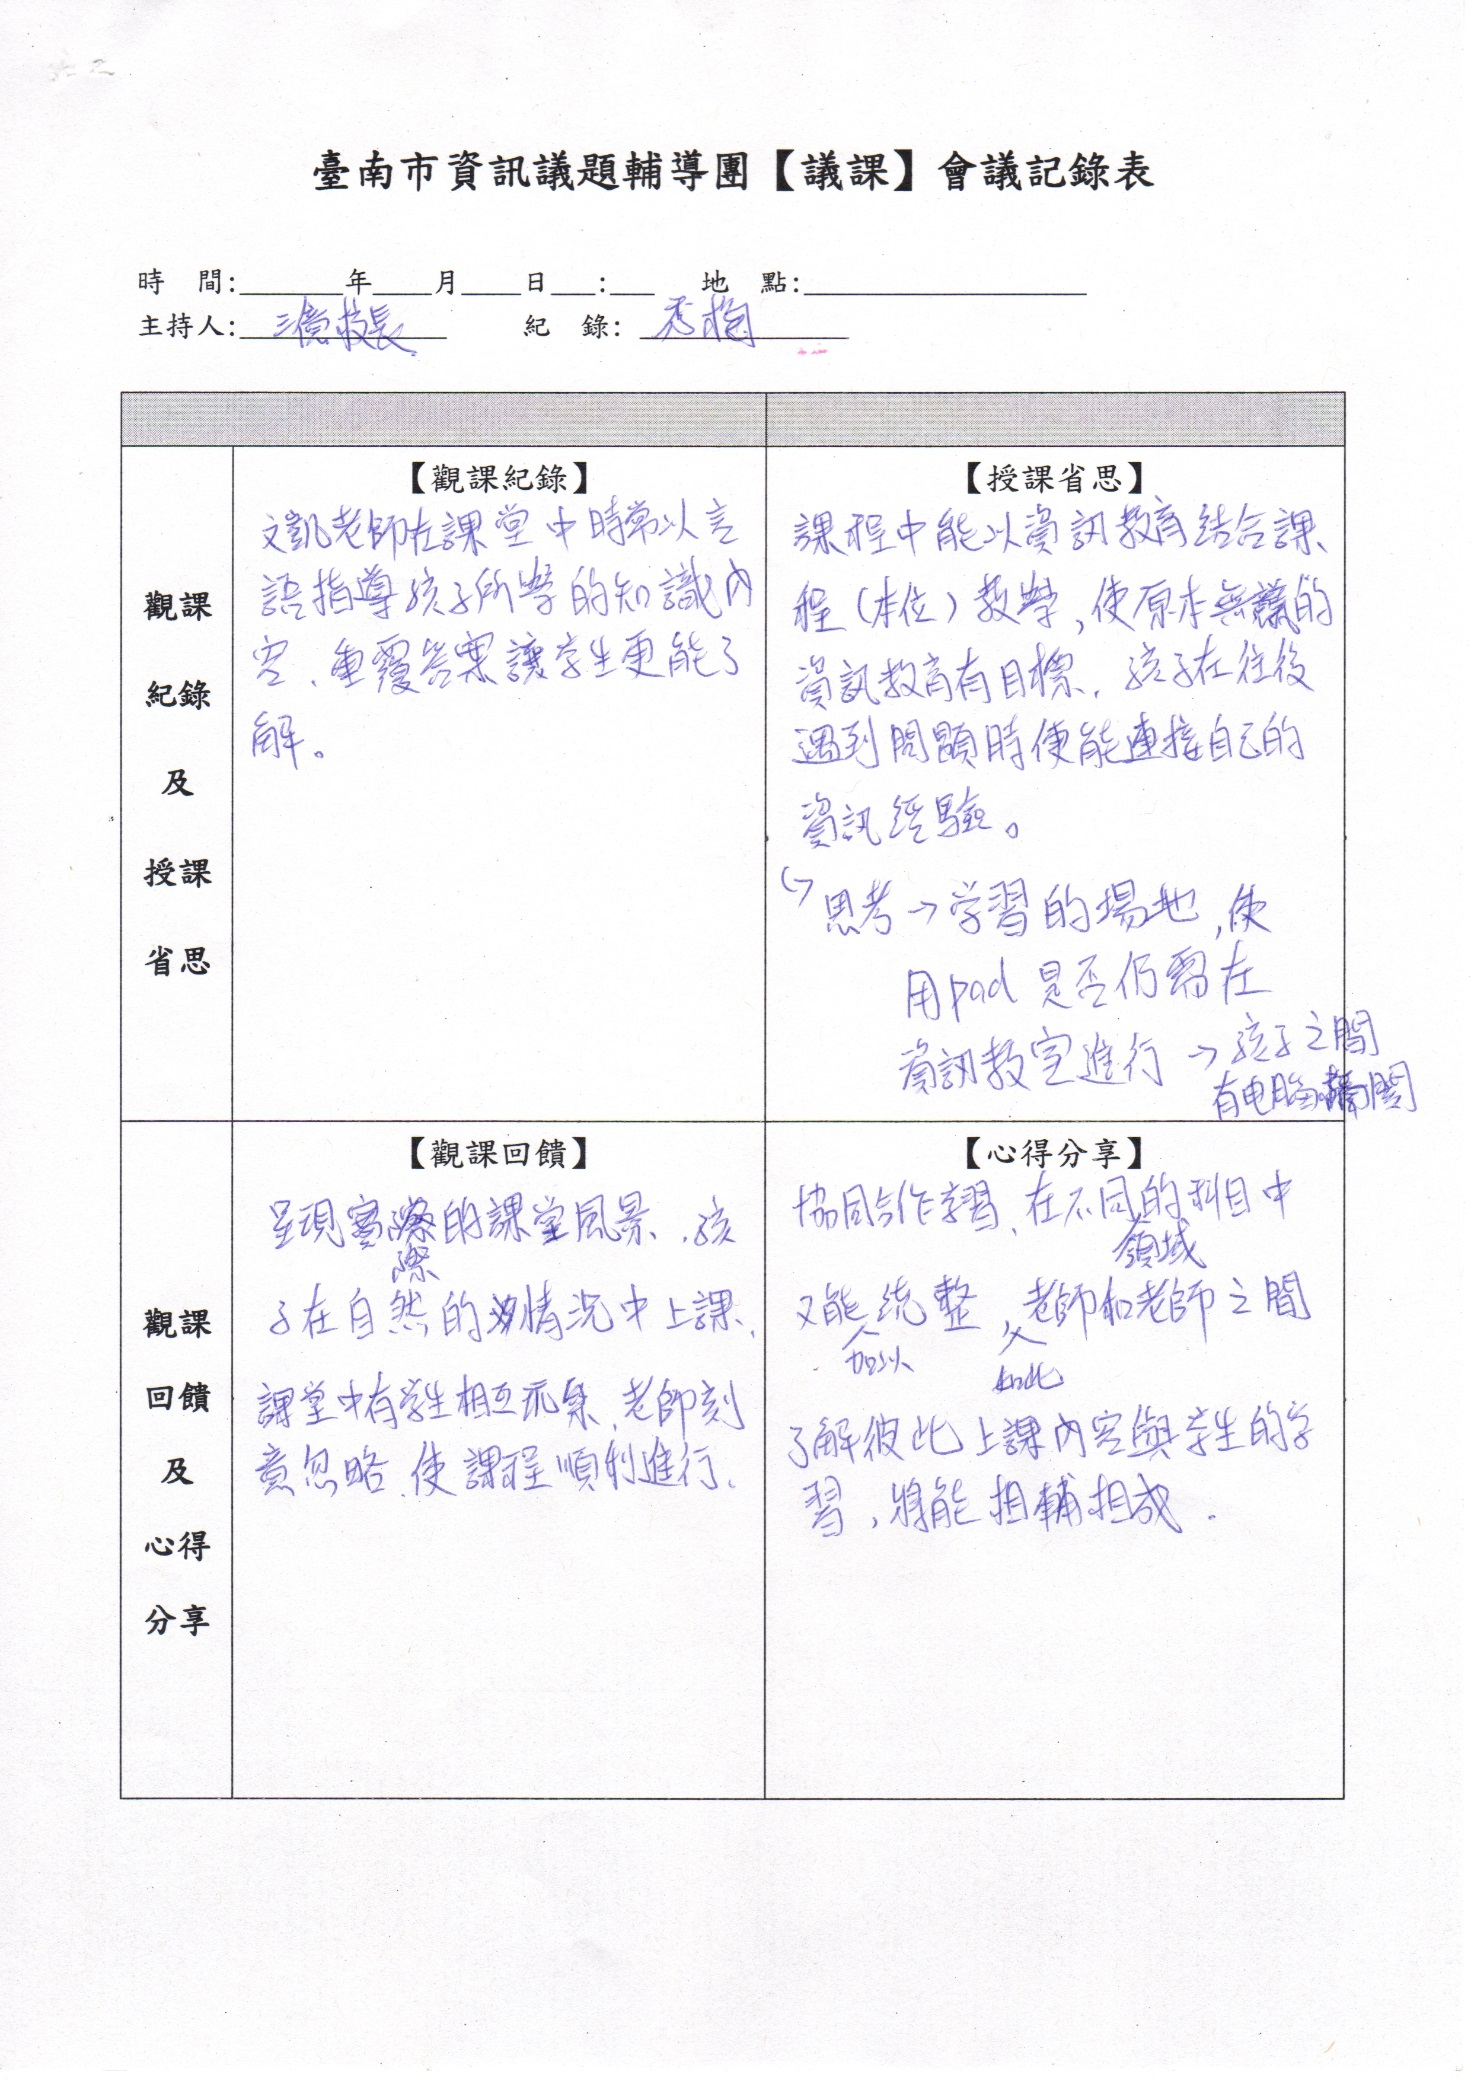 臺南市資訊議題輔導團【議課】會議記錄表
時　間:______年____月____日___:___　地　點:__________________
主持人: 三億校長　紀　錄: 秀梅
觀課
紀錄
及
授課
省思
【觀課紀錄】
文凱老師在課堂中時常以言
語指導孩子所學的知識內
容、重覆答案讓学生更能了
解。
【授課省思】
課程中能以資訊教育結合課
程(本位)教學,使原本無議的
資訊教育有目標,孩子在往後
遇到問題時便能連接自己的
資訊經驗。
↪思考→学習的場地,使
用pad 是否仍需在
資訊教室進行→孩子之間
有电腦隔閡
觀課
回饋
及
心得
分享
【觀課回饋】
呈現實際的課堂風景、孩
際
子在自然的情況中上課、
課堂中有学生相互 老師刻
意忽略、使課程順利進行、
【心得分享】
協同合作学習、在不同的科目中
領域
又能統整,老師和老師之間
加以
如此
了解彼此上課內容與学生的学
習,將能相輔相成.